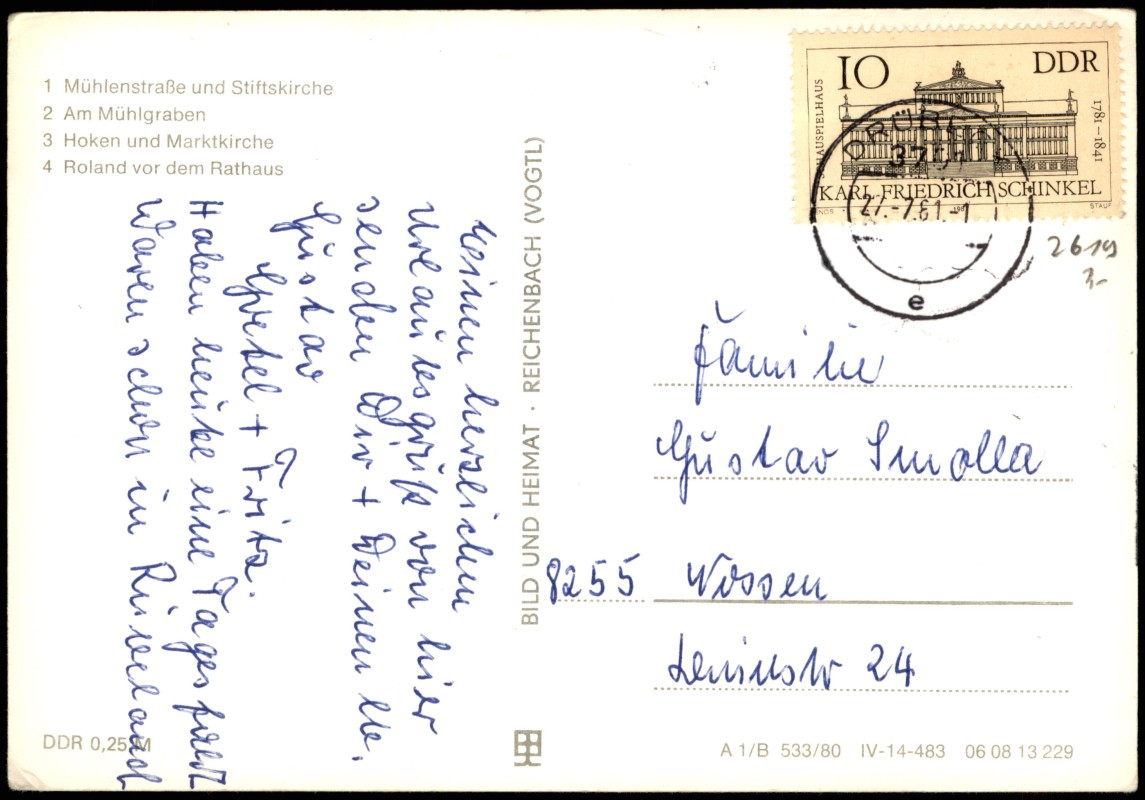 1 Mühlenstraße und Stiftskirche
2 Am Mühlgraben
3 Hoken und Marktkirche
4 Roland vor dem Rathaus
Einen herzlichen
Urlaubsgruß von hier
senden Dir + Deinen lie.
Gustav
Gretel + Fritz.
Haben heute eine Tagesfahrt
Waren schon in Rübeland
DDR 0,25 M
BILD UND HEIMAT · REICHENBACH (VOGTL)
10 DDR
SCHAUSPIELHAUS
1781–1841
KARL-FRIEDRICH SCHINKEL
1981
STAUF
27.-7.81.-1
e
2619
3-
Familie
Gustav Smolla
8255 Nossen
Leninstr 24
A 1/B 533/80 IV-14-483 06 08 13 229